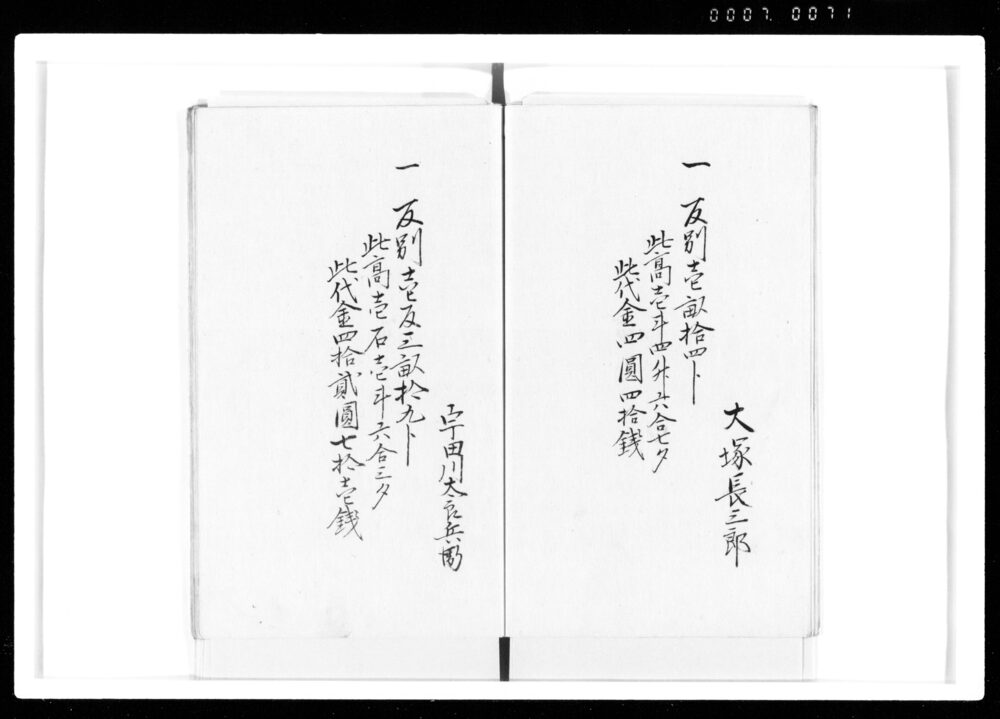 0007. 0071
大塚長三郎
一 反別壱畝拾四ト
此高壱斗四升六合七夕
此代金四圓四拾銭
宇田川太良兵衛
一 反別壱反三畝拾九ト
此高壱石壱斗六合三夕
此代金四拾貳圓七拾壱銭